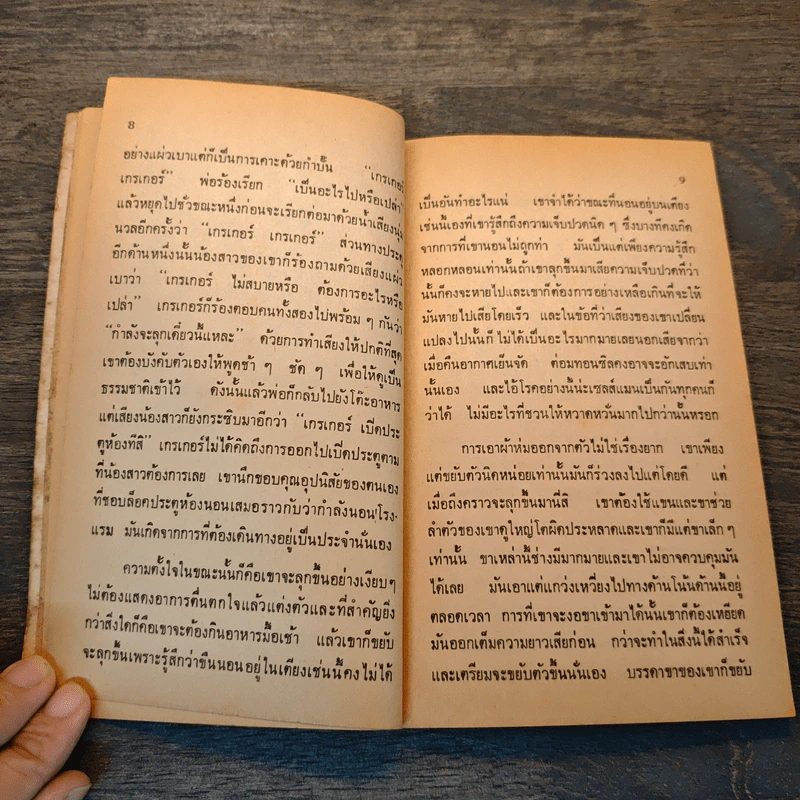 8
อย่างแผ่วเบาแต่ก็เป็นการเคาะด้วยกำปั้น "เกรเกอร์
เกรเกอร์" พ่อร้องเรียก "เป็นอะไรไปหรือเปล่า"
แล้วหยุดไปชั่วขณะหนึ่งก่อนจะเรียกต่อมาด้วยน้ำเสียงนุ่ม
นวลอีกครั้งว่า "เกรเกอร์ เกรเกอร์" ส่วนทางประตู
อีกด้านหนึ่งนั้นน้องสาวของเขาก็ร้องถามด้วยเสียงแผ่ว
เบาว่า "เกรเกอร์ ไม่สบายหรือ ต้องการอะไรหรือ
เปล่า" เกรเกอร์ก็ร้องตอบคนทั้งสองไปพร้อม ๆ กันว่า
"กำลังจะลุกเดี๋ยวนี้แหละ" ด้วยการทำเสียงให้ปกติที่สุด
เขาต้องบังคับตัวเองให้พูดช้า ๆ ชัด ๆ เพื่อให้ดูเป็น
ธรรมชาติเข้าไว้ ดังนั้นแล้วพ่อก็กลับไปยังโต๊ะอาหาร
แต่เสียงน้องสาวก็ยังกระซิบมาอีกว่า "เกรเกอร์ เปิดประ
ตูห้องทีสิ" เกรเกอร์ไม่ได้คิดถึงการออกไปเปิดประตูตาม
ที่น้องสาวต้องการเลย เขานึกขอบคุณอุปนิสัยของตนเอง
ที่ชอบล็อคประตูห้องนอนเสมอราวกับว่ากำลังนอนโรง-
แรม มันเกิดจากการที่ต้องเดินทางอยู่เป็นประจำนั่นเอง
ความตั้งใจในขณะนั้นก็คือเขาจะลุกขึ้นอย่างเงียบๆ
ไม่ต้องแสดงอาการตื่นตกใจแล้วแต่งตัวและที่สำคัญยิ่ง
กว่าสิ่งใดก็คือเขาจะต้องกินอาหารมื้อเช้า แล้วเขาก็ขยับ
จะลุกขึ้นเพราะรู้สึกว่าขืนนอนอยู่ในเตียงเช่นนี้คงไม่ได้
9
เป็นอันทำอะไรแน่ เขาจำได้ว่าขณะที่นอนอยู่บนเตียง
เช่นนี้เองที่เขารู้สึกถึงความเจ็บปวดนิด ๆ ซึ่งบางทีคงเกิด
จากการที่เขานอนไม่ถูกท่า มันเป็นแต่เพียงความรู้สึก
หลอกหลอนเท่านั้นถ้าเขาลุกขึ้นมาเสียความเจ็บปวดที่ว่า
นั้นก็คงจะหายไปและเขาก็ต้องการอย่างเหลือเกินที่จะให้
มันหายไปเสียโดยเร็ว และในข้อที่ว่าเสียงของเขาเปลี่ยน
แปลงไปนั้นก็ ไม่ได้เป็นอะไรมากมายเลยนอกเสียจากว่า
เมื่อคืนอากาศเย็นจัด ต่อมทอนซิลคงอาจจะอักเสบเท่า
นั้นเอง และไอ้โรคอย่างนี้น่ะเซลส์แมนเป็นกันทุกคนก็
ว่าได้ ไม่มีอะไรที่ชวนให้หวาดหวั่นมากไปกว่านั้นหรอก
การเอาผ้าห่มออกจากตัวไม่ใช่เรื่องยาก เขาเพียง
แต่ขยับตัวนิดหน่อยเท่านั้นมันก็ร่วงลงไปแต่โดยดี แต่
เมื่อถึงคราวจะลุกขึ้นมานี่สิ เขาต้องใช้แขนและขาช่วย
ลำตัวของเขาดูใหญ่โตผิดประหลาดและเขาก็มีแต่ขาเล็ก ๆ
เท่านั้น ขาเหล่านี้ช่างมีมากมายและเขาไม่อาจควบคุมมัน
ได้เลย มันเอาแต่แกว่งเหวี่ยงไปทางด้านโน้นด้านนี้อยู่
ตลอดเวลา การที่เขาจะงอขาเข้ามาได้นั้นเขาก็ต้องเหยียด
มันออกเต็มความยาวเสียก่อน กว่าจะทำในสิ่งนี้ได้สำเร็จ
และเตรียมจะขยับตัวขึ้นนั่นเอง บรรดาขาของเขาก็ขยับ